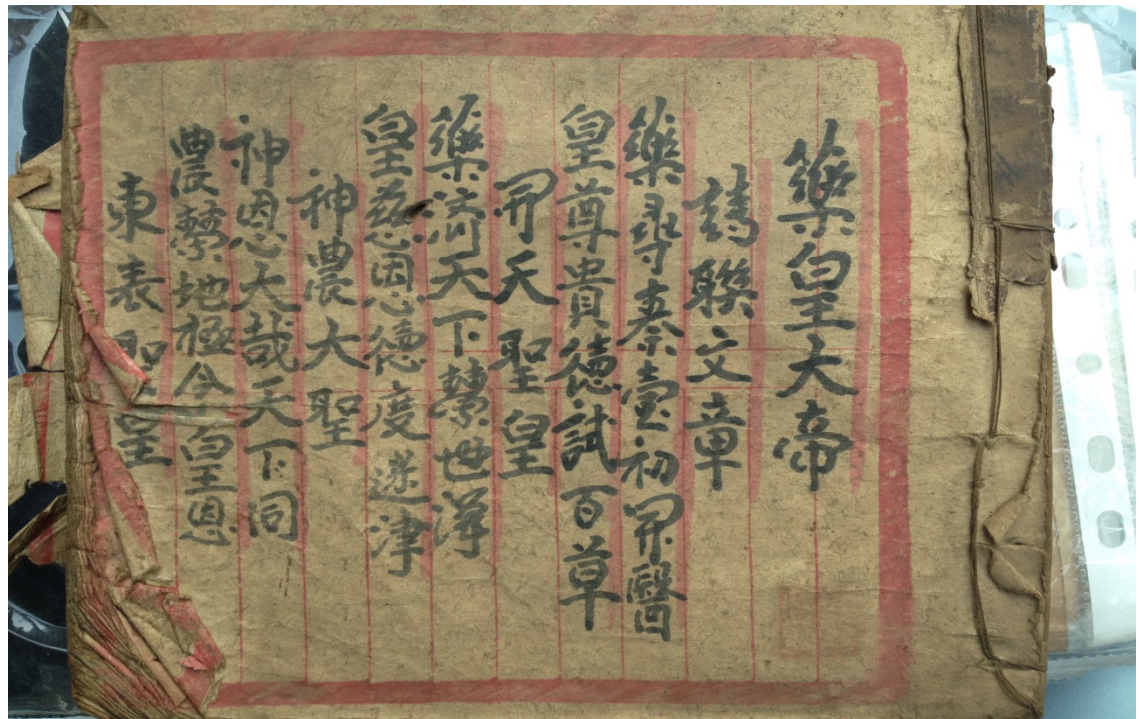 藥皇大帝
請聯文章
藥尋泰壹初開醫
皇尊貴德試百草
開天聖皇
藥流天下榮世澤
皇慈因心德度迷津
神農大聖
神恩大哉天下同
農榮地極今皇恩
東表聖皇